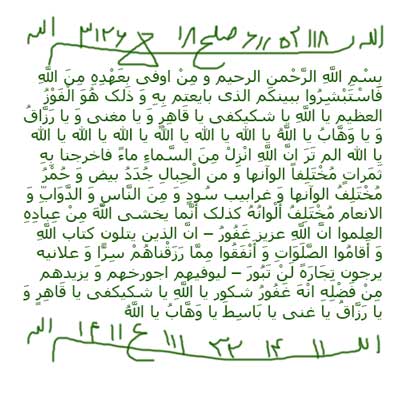 الله ١١٨ ٥٢ ١١ ٧ صلح ١٨ ٣١٢٦ الله
بِسْمِ اللَّهِ الرَّحْمنِ الرحيم وَ مِنْ اوفی بِعَهْدِهِ مِنَ اللَّهِ
فَاسْتَبْشِرُوا ببینکم الذی بایعتم بِهِ وَ ذَلک هُوَ الْفَوْزُ
العظیم یا اللَّهِ یا شکیکفی یا قَاهِرٍ وَ یا مغنی وَ یا رَزَّاقُ
وَ یا وَهَّابُ یا اللَّهُ یا اللَّه یا اللَّه یا اللَّهُ یا اللَّه یا اللَّه یا اللَّه
یا اللَّه الم تَرَ انَّ اللَّهِ انْزِلْ مِنَ السَّماءِ ماءً فاخرجنا بِهِ
ثَمَراتِ مُخْتَلِفاً الوآنها وَ من الْجِبالِ جُدَدُ بیض وَ حُمْرُ
مُخْتَلِفُ الوآنها وَ غرابیب سُودٍ وَ مِنَ النَّاسِ وَ الدَّوَابِّ وَ
الانعام مُخْتَلِفُ الْوانُهُ کذلک انَّما یخشی اللَّهَ مِنْ عِبادِهِ
العلموا انَّ اللَّهِ عزیز غَفُورُ – انَّ الذین یتلون کتاب اللَّهِ
وَ أَقامُوا الصَّلَوَاتِ وَ أَنْفَقُوا مِمَّا رَزَقْناهُمْ سِرًّا وَ علانیه
یرجون تِجَارَةً لَنْ تَبُورَ – لیوفیهم اجورخهم وَ یزیدهم
مِنْ فَضْلِهِ انْهَ غَفُورُ شکور یا اللَّهِ یا شکیکفی یا قَاهِرٍ وَ
یا رَزَّاقُ یا غنی یا بَاسِطَ یا وَهَّابُ یا اللَّهُ
الله ١١ ١۴ ٣٣ ١١١ ع ١١ ١۴ الله